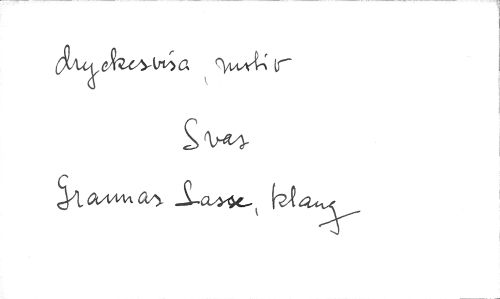 dryckesvisa, motiv
Svar
Grannas Lasse, klang